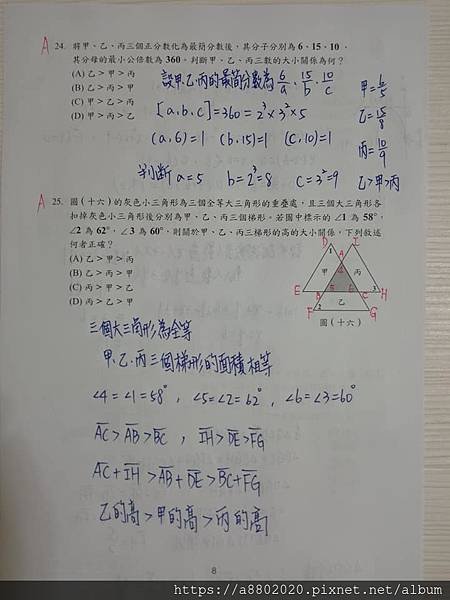 A 24. 將甲、乙、丙三個正分數化為最簡分數後，其分子分別為 6、15、10，
其分母的最小公倍數為 360。判斷甲、乙、丙三數的大小關係為何？
(A) 乙 > 甲 > 丙
(B) 乙 > 丙 > 甲
(C) 甲 > 乙 > 丙
(D) 甲 > 丙 > 乙
設甲.乙.丙的最簡分數為 6/a . 15/b . 10/c
[a,b,c]=360=2³×3²×5
(a,6)=1 (b,15)=1 (c,10)=1
判斷 a=5 b=2³=8 c=3²=9
甲=6/5
乙=15/8
丙=10/9
乙>甲>丙
A 25. 圖(十六)的灰色小三角形為三個全等大三角形的重疊處，且三個大三角形各
扣掉灰色小三角形後分別為甲、乙、丙三個梯形。若圖中標示的 ∠1 為 58°，
∠2 為 62°，∠3 為 60°，則關於甲、乙、丙三梯形的高的大小關係，下列敘述
何者正確？
(A) 乙 > 甲 > 丙
(B) 乙 > 丙 > 甲
(C) 丙 > 甲 > 乙
(D) 丙 > 乙 > 甲
D I
1 A
甲 4 丙
E B 5 6 C 3 H
乙
F 2 G
圖(十六)
三個大三角形為全等
甲.乙.丙三個梯形的面積相等
∠4=∠1=58°, ∠5=∠2=62°, ∠6=∠3=60°
AC>AB>BC , IH>DE>FG
AC+IH>AB+DE>BC+FG
乙的高>甲的高>丙的高
8
https://a8802020.pixnet.net/album